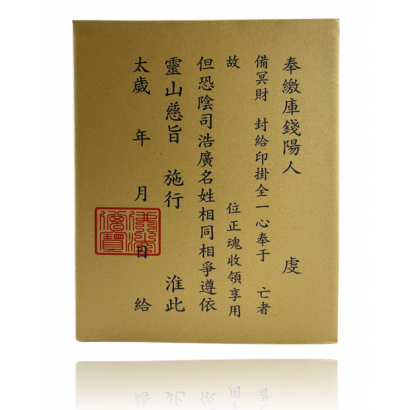 奉繳庫錢陽人 虔
備冥財 封給印掛全一心奉于 亡者
故 位正魂收領享用
但恐陰司浩廣名姓相同相爭遵依
靈山慈旨 施行 淮此
太歲 年 月 日 給